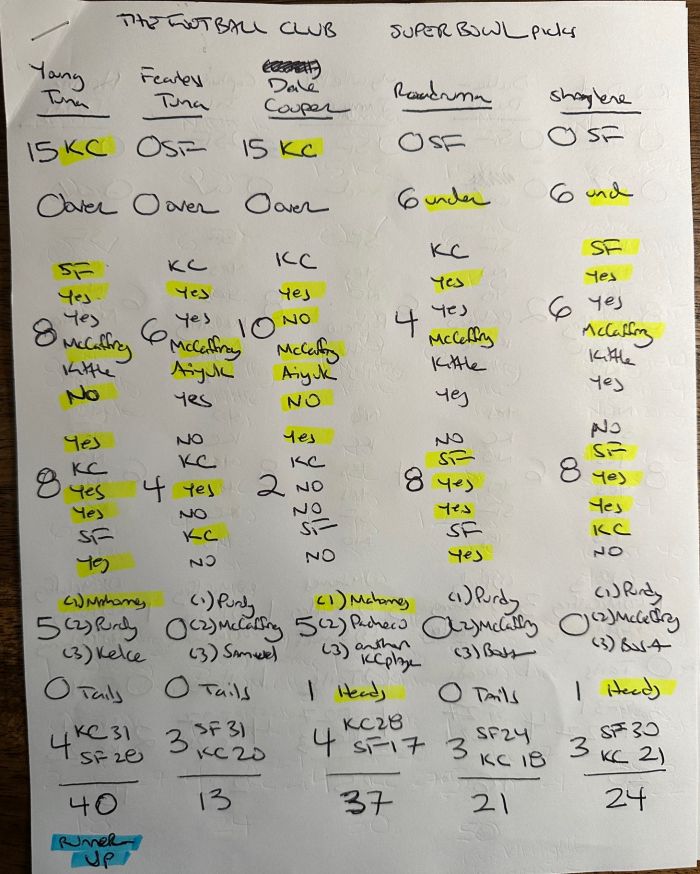 THE FOOTBALL CLUB SUPER BOWL picks
Young Tuna Fearless Tuna Dale Couper Roadruma Shaylene
15 KC 0 SF 15 KC 0 SF 0 SF
0 over 0 over 0 over 6 under 6 und
SF KC KC KC SF
Yes Yes Yes Yes Yes
Yes Yes NO Yes Yes
8 McCaffrey 6 McCaffrey 10 McCaffry 4 McCaffrey 6 McCaffry
Kittle Aiyuk Aiyuk Kittle Kittle
NO Yes NO Yes Yes
Yes NO Yes NO NO
KC KC KC SF SF
8 Yes 4 Yes 2 NO 8 Yes 8 Yes
Yes NO NO Yes Yes
SF KC SF SF KC
Yes NO NO Yes NO
(1) Mahomes (1) Purdy (1) Mahomes (1) Purdy (1) Purdy
5 (2) Purdy 0 (2) McCaffrey 5 (2) Pacheco 0 (2) McCaffry 0 (2) McCaffry
(3) Kelce (3) Samuel (3) another KC player (3) Bosa (3) Bosa
0 Tails 0 Tails 1 Heads 0 Tails 1 Heads
4 KC 31 3 SF 31 4 KC 28 3 SF 24 3 SF 30
SF 28 KC 20 SF 17 KC 18 KC 21
40 13 37 21 24
RUNNER
UP